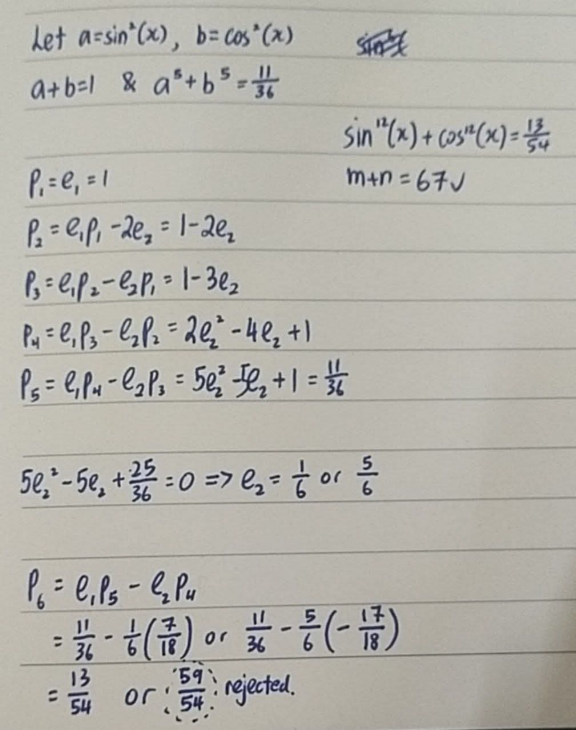 Let a=sin²(x), b=cos²(x)
a+b=1 & a⁵+b⁵=11/36
sin¹²(x)+cos¹²(x)=13/54
m+n=67✓
P₁=e₁=1
P₂=e₁P₁-2e₂=1-2e₂
P₃=e₁P₂-e₂P₁=1-3e₂
P₄=e₁P₃-e₂P₂=2e₂²-4e₂+1
P₅=e₁P₄-e₂P₃=5e₂²-5e₂+1=11/36
5e₂²-5e₂+25/36=0=>e₂=1/6 or 5/6
P₆=e₁P₅-e₂P₄
=11/36-1/6(7/18) or 11/36-5/6(-17/18)
=13/54 or 59/54 rejected.